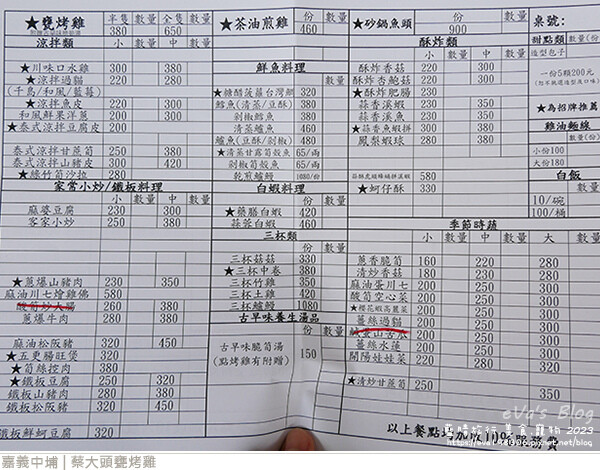 ★甕烤雞 半隻 數量 全隻 數量
380 650
涼拌類 小 數量 中 數量
★川味口水雞 300 380
★涼拌過貓 220 280
(千島/和風/藍莓)
★涼拌魚皮 220 300
和風鮮果洋蔥 200 300
★泰式涼拌豆腐皮 200
泰式涼拌甘蔗筍 250 380
泰式涼拌山豬皮 300 420
★綠竹筍沙拉 280
家常小炒/鐵板料理 小 數量 中 數量
麻婆豆腐 230 300
客家小炒 250 380
★蔥爆山豬肉 230 350
麻油川七燴雞佛 580
酸筍炒大腸 260 380
蔥爆牛肉 280 380
麻油松阪豬 320 450
★五更腸旺煲 320
★筍絲控肉 380
★鐵板豆腐 250 320
鐵板山豬肉 280 380
鐵板松阪豬 320 450
鐵板鮮蚵豆腐 320
★茶油煎雞 份 數量
460
鮮魚料理 數量
★糖醋菠蘿台灣鯛 320
鱈魚(清蒸/豆酥) 380
剁椒鱈魚 380
清蒸鱸魚 460
鱸魚(豆酥/剁椒) 480
★清蒸甘露筍殼魚 65/兩
剁椒筍殼魚 65/兩
乾煎鱸鰻 1080/份
白蝦料理 份 數量
★藥膳白蝦 420
蒜蓉白蝦 460
三杯類 份 數量
三杯菇菇 330
★三杯中卷 380
三杯竹雞 350
三杯土雞 420
三杯鱸鰻 1080
古早味養生湯品
份 數量
古早味脆筍湯
(點烤雞有附贈)
150
★砂鍋魚頭 份 數量
900
酥炸類 小 數量 中 數量
酥炸香菇 220 300
酥炸杏鮑菇 220 300
★酥炸肥腸 230
蒜香溪蝦 230 350
蒜香溪魚 230 350
★蒜香魚蝦拼 230 380
鳳梨蝦球 280 380
580
★蚵仔酥 330
季節時蔬
小 數量 中 數量 大 數量
蔥香脆筍 160 220 280
清炒香菇 180 230 280
麻油蛋川七 200 300
酸筍空心菜 200 300
★櫻花蝦高麗菜 200 300
薑絲過貓 200 300
鹹蛋山苦瓜 200 300
薑絲水蓮 200 300
開陽娃娃菜 220 280 320
★清炒甘蔗筍 250
350
桌號:
甜點類 數量
造型包子
一份5顆200元
★為招牌推薦
雞油麵線
數量(份)
小份100
大份180
白飯
數量
10/碗
100/桶
以上餐點均加收10%服務費
eVa's Blog
嘉義中埔│蔡大頭甕烤雞